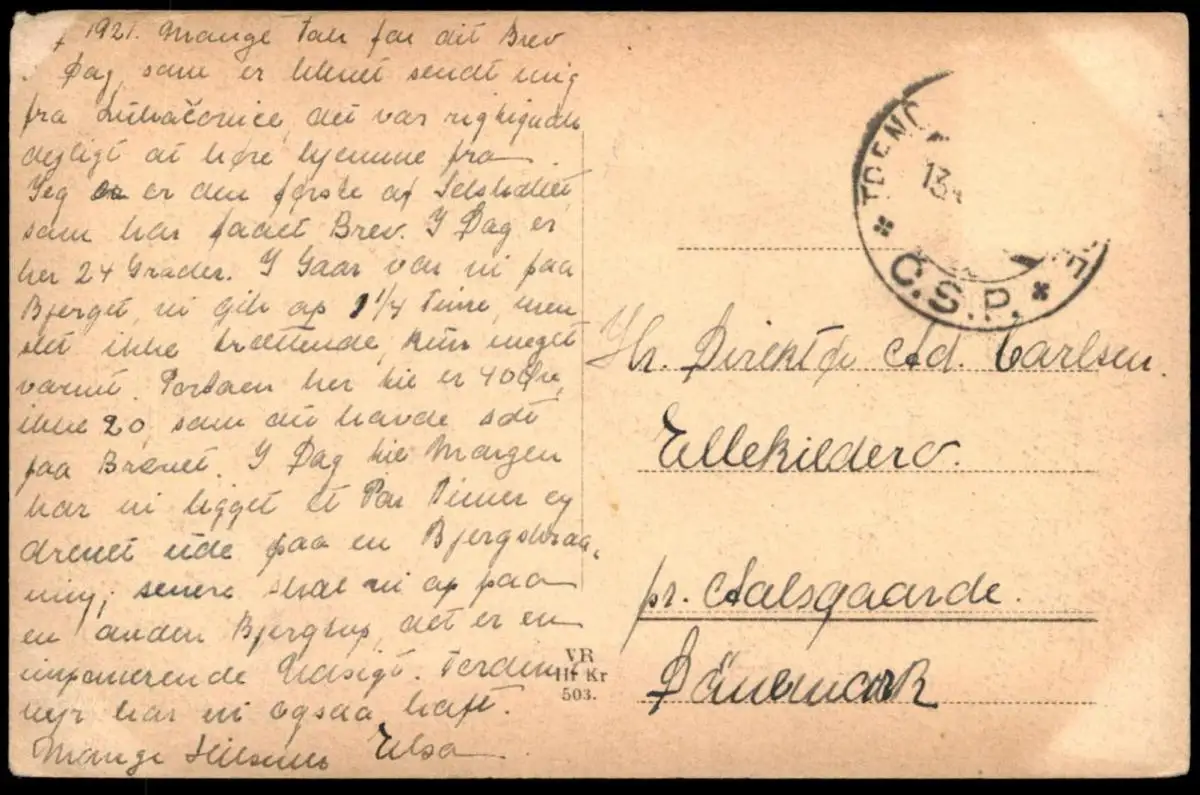 1921. Mange Tak for dit Brev
Dag, som er blevet sendt mig
fra Luhačovice, det var rigtignok
dejligt at høre hjemme fra
Jeg er den første af Selskabet,
som har faaet Brev. I Dag er
her 24 Grader. I Gaar var vi paa
Bjerget, vi gik op 1 1/4 Time, men
det ikke trættende, kun meget
varmt. Portoen her til er 40 Øre,
ikke 20, som du havde sat
paa Brevet. I Dag til Morgen
har vi ligget et Par Timer og
drevet ude paa en Bjergskraa-
ning; senere skal vi op paa
en anden Bjergtop, det er en
imponerende Udsigt. Torden
vejr har vi ogsaa haft.
Mange Hilsener Elsa
VR
Hr Kr
503.
TRENČ
13
C.S.P.
Hr. Direktør Ad. Carlsen.
Ellekilde
pr. Aalsgaarde.
Dänemark